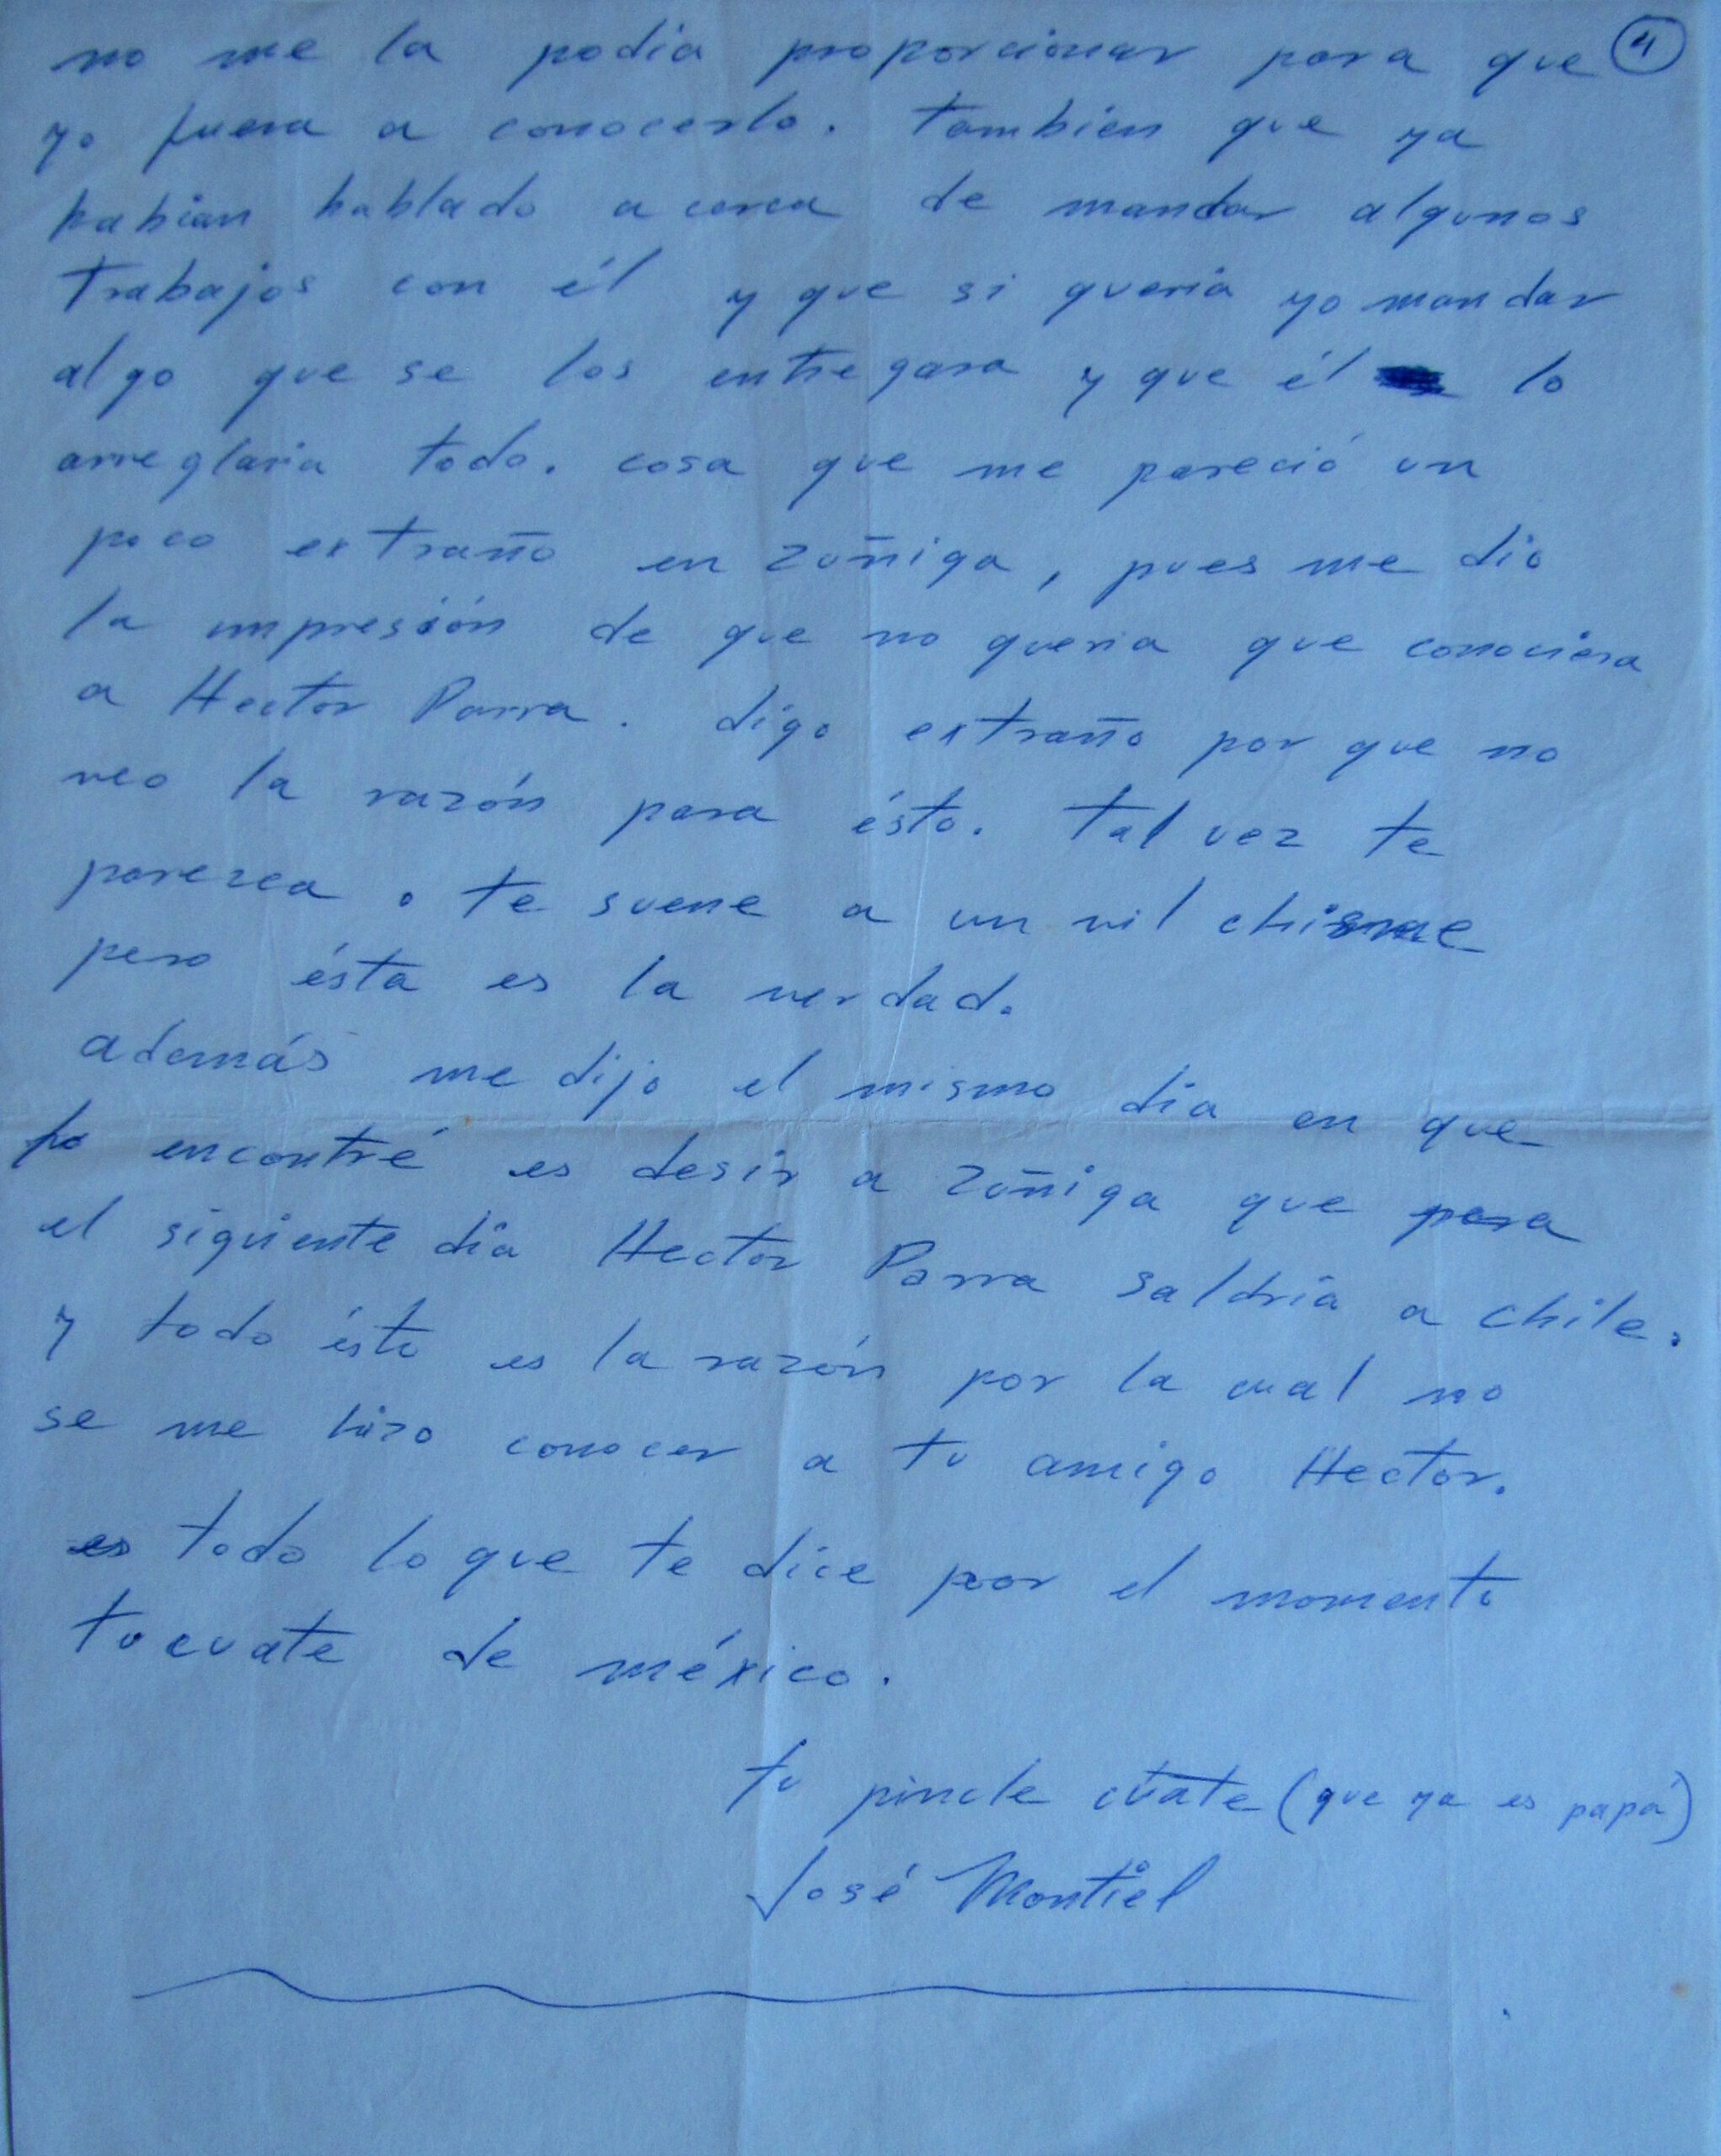 no me la podia proporcionar para que 4
yo fuera a conocerlo. Tambien que ya
habian hablado a cerca de mandar algunos
trabajos con él y que si queria yo mandar
algo que se los entregara y que él lo
arreglaria todo. cosa que me pareció un
poco extraño en zuñiga, pues me dio
la impresión de que no queria que conociera
a Hector Parra. digo extraño por que no
veo la razón para ésto. Tal vez te
parezca o te suene a un vil chisme
pero ésta es la verdad.
además me dijo el mismo dia en que
lo encontré es desir a zuñiga que para
el siguiente dia Hector Parra saldria a chile.
y todo ésto es la razón por la cual no
se me hizo conocer a tu amigo Hector.
es todo lo que te dice por el momento
tu cuate de méxico.
tu pinche cuate (que ya es papá)
José Montiel